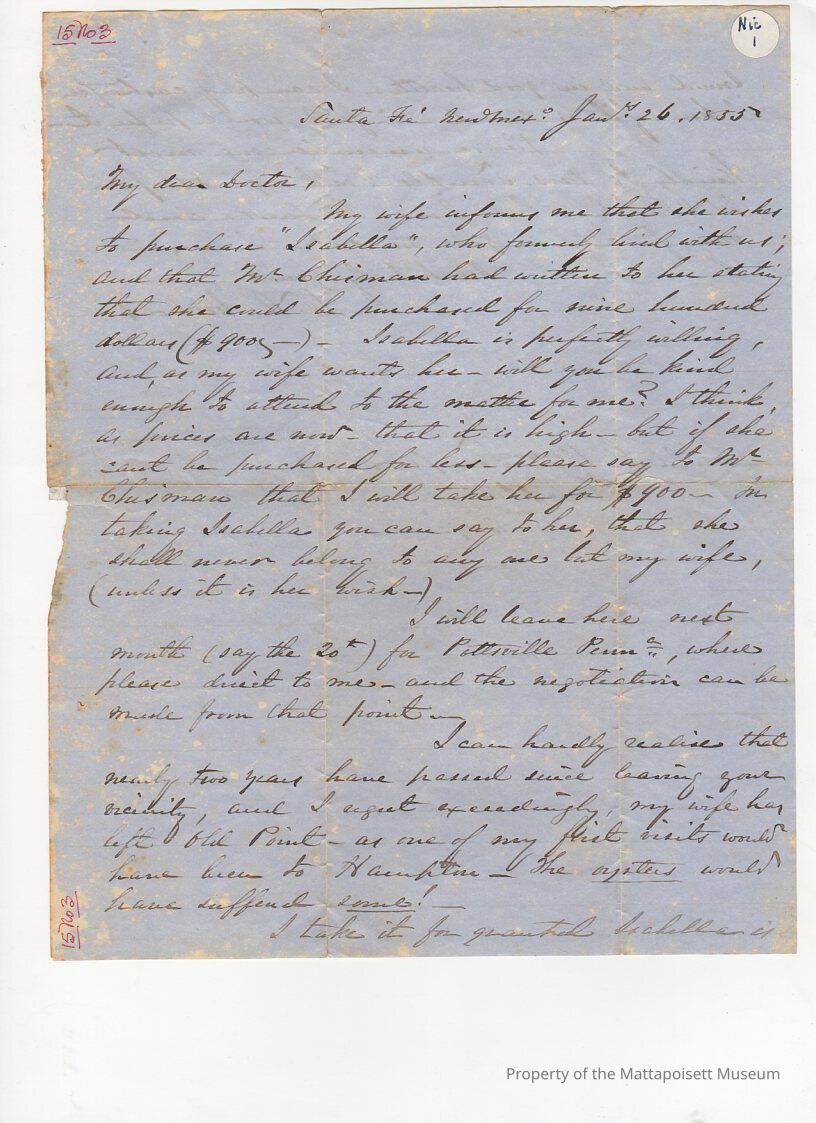 15 No 3
Nic
1
Santa Fé New Mexo Jany 26. 1855
My dear Doctor,
My wife informs me that she wishes
to purchase "Isabella", who formerly lived with us;
and that Mr. Chisman had written to her stating
that she could be purchased for nine hundred
dollars ($900 —) - Isabella is perfectly willing,
and, as my wife wants her - will you be kind
enough to attend to the matter for me? I think,
as prices are now - that it is high - but if she
cant be purchased for less - please say to Mr
Chisman that I will take her for $900 — In
taking Isabella you can say to her, that she
shall never belong to any one but my wife,
(unless it is her wish —)
I will leave here next
month (say the 20th) for Pottsville Penna, where
please direct to me - and the negotiation can be
made from that point —
I can hardly realise that
nearly two years have passed since leaving your
vicinity, and I regret exceedingly, my wife has
left Old Point - as one of my first visits would
have been to Hampton - The oysters would
have suffered some! —
I take it for granted Isabella is
15 No 3
Property of the Mattapoisett Museum